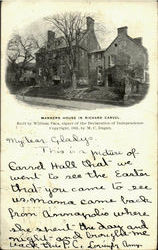 MANNERS HOUSE IN RICHARD CARVEL
Built by William Paca, signer of the Declaration of Independence
Copyright, 1902, by M. C. Dugan.
My dear Gladys,
This is a picture of
Carvel Hall that we
went to see the Easter
that you came to see
us. mama came back
from Annapolis where
she spent the day and
night and brought me
each this P.C. Lovingly Amy.